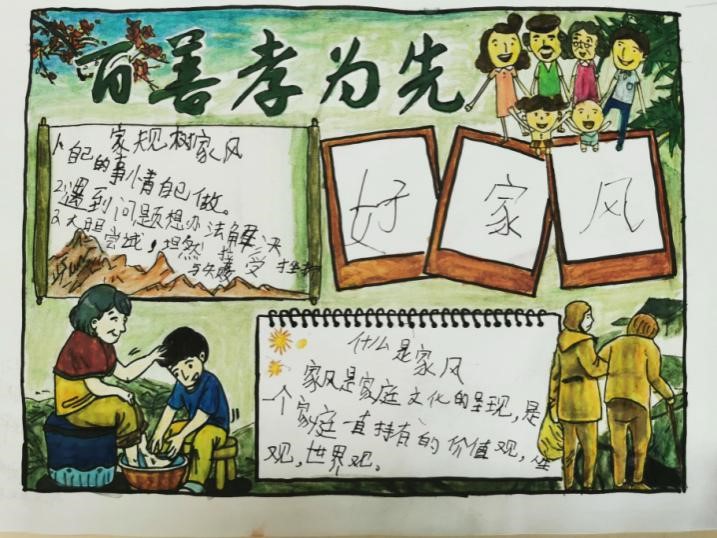 百善孝为先
家规树家风
1.自己的事情自己做。
2.遇到问题想办法解决
3.大胆尝试,坦然接受
与失败
好
家
风
什么是家风
家风是家庭文化的呈现,是
一个家庭一直持有的价值观,
观,世界观。